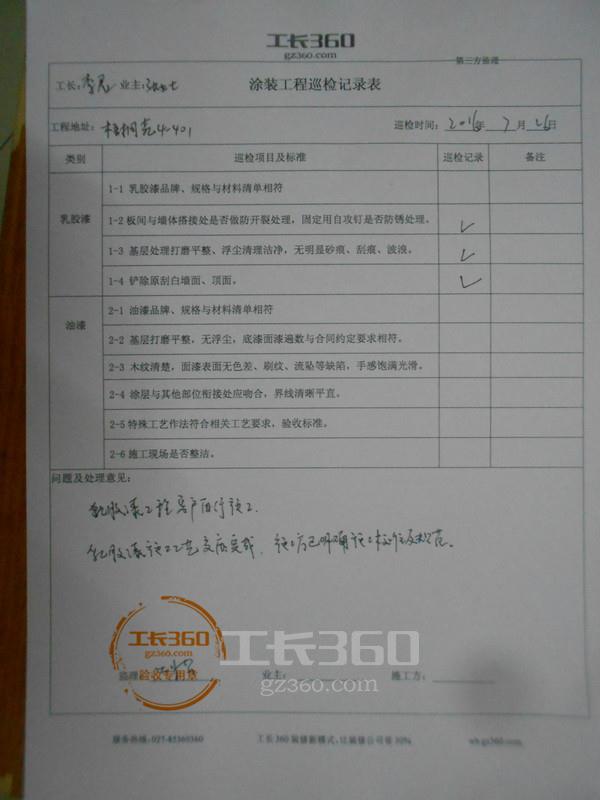 工长360
gz360.com
第三方监理
工长: 业主:
涂装工程巡检记录表
工程地址: 梧桐苑4-401 巡检时间: 2016年 7月 26日
类别 巡检项目及标准 巡检记录 备注
乳胶漆
1-1 乳胶漆品牌、规格与材料清单相符
1-2板间与墙体搭接处是否做防开裂处理,固定用自攻钉是否防锈处理。 ✓
1-3 基层处理打磨平整、浮尘清理洁净,无明显砂痕、刮痕、波浪。 ✓
1-4 铲除原刮白墙面、顶面。 ✓
油漆
2-1 油漆品牌、规格与材料清单相符
2-2 基层打磨平整,无浮尘,底漆面漆遍数与合同约定要求相符。
2-3 木纹清楚,面漆表面无色差、刷纹、流坠等缺陷,手感饱满光滑。
2-4 涂层与其他部位衔接处应吻合,界线清晰平直。
2-5特殊工艺作法符合相关工艺要求,验收标准。
2-6施工现场是否整洁。
问题及处理意见:
乳胶漆工程客户自行施工.
乳胶漆施工工艺交底完成,施工方已明确施工标准及规范。
工长360
验收专用章
工长360
gz360.com
监理: 业主: 施工方:
服务热线:027-85360360 工长360装修新模式,比装修公司省30% wh.gz360.com